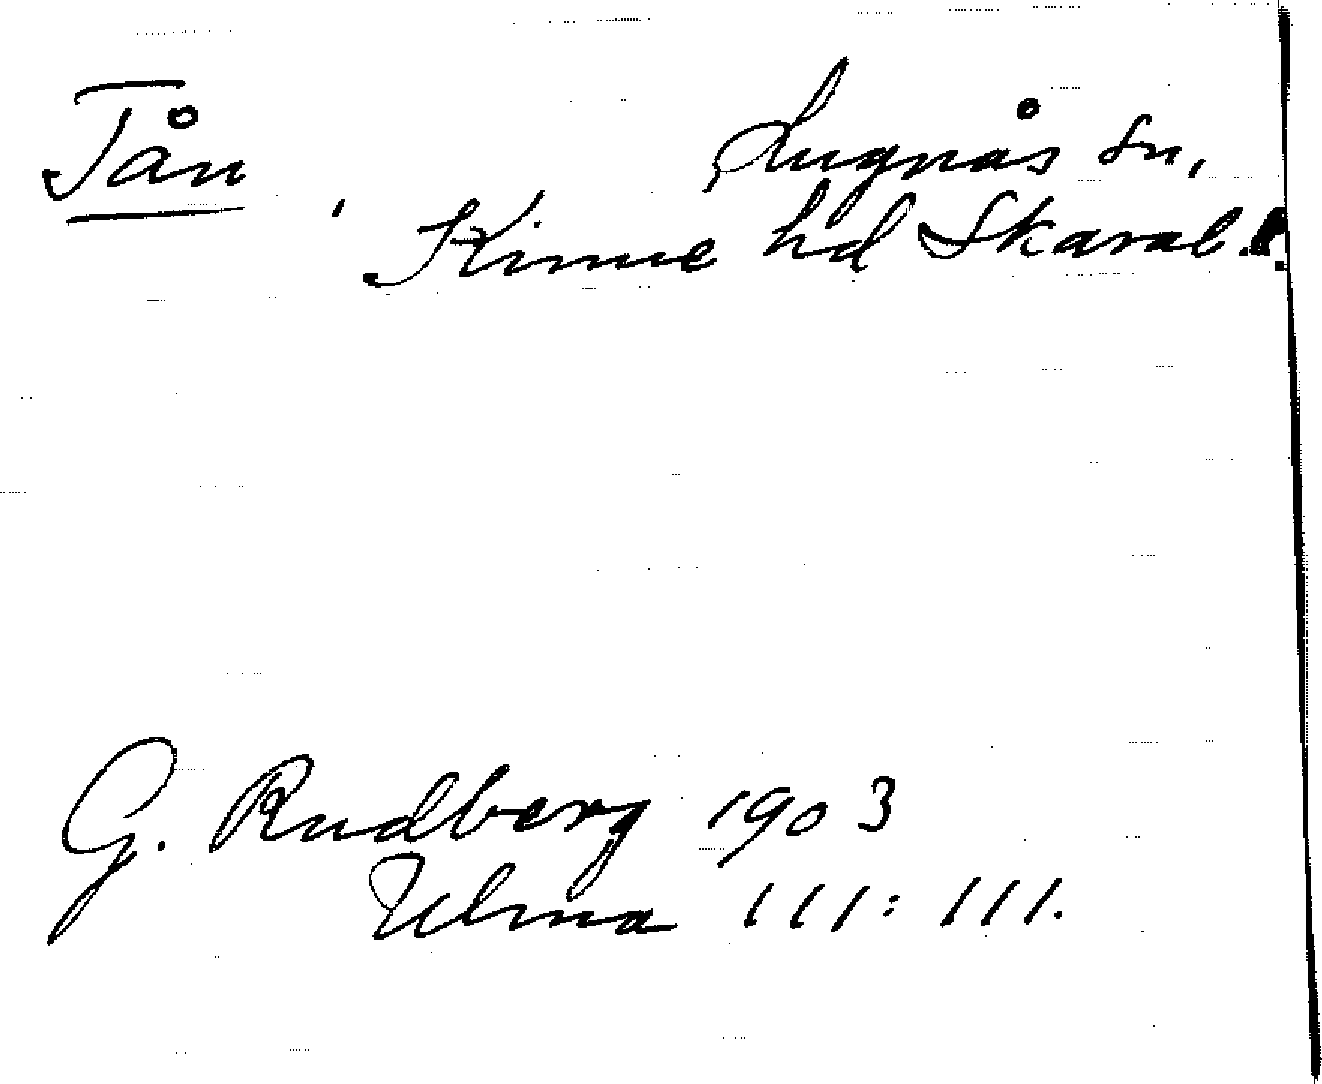 Tån, Lugnås sn,
Kinne hd Skarab. l.
G. Rudberg 1903
Ulma 111:111.